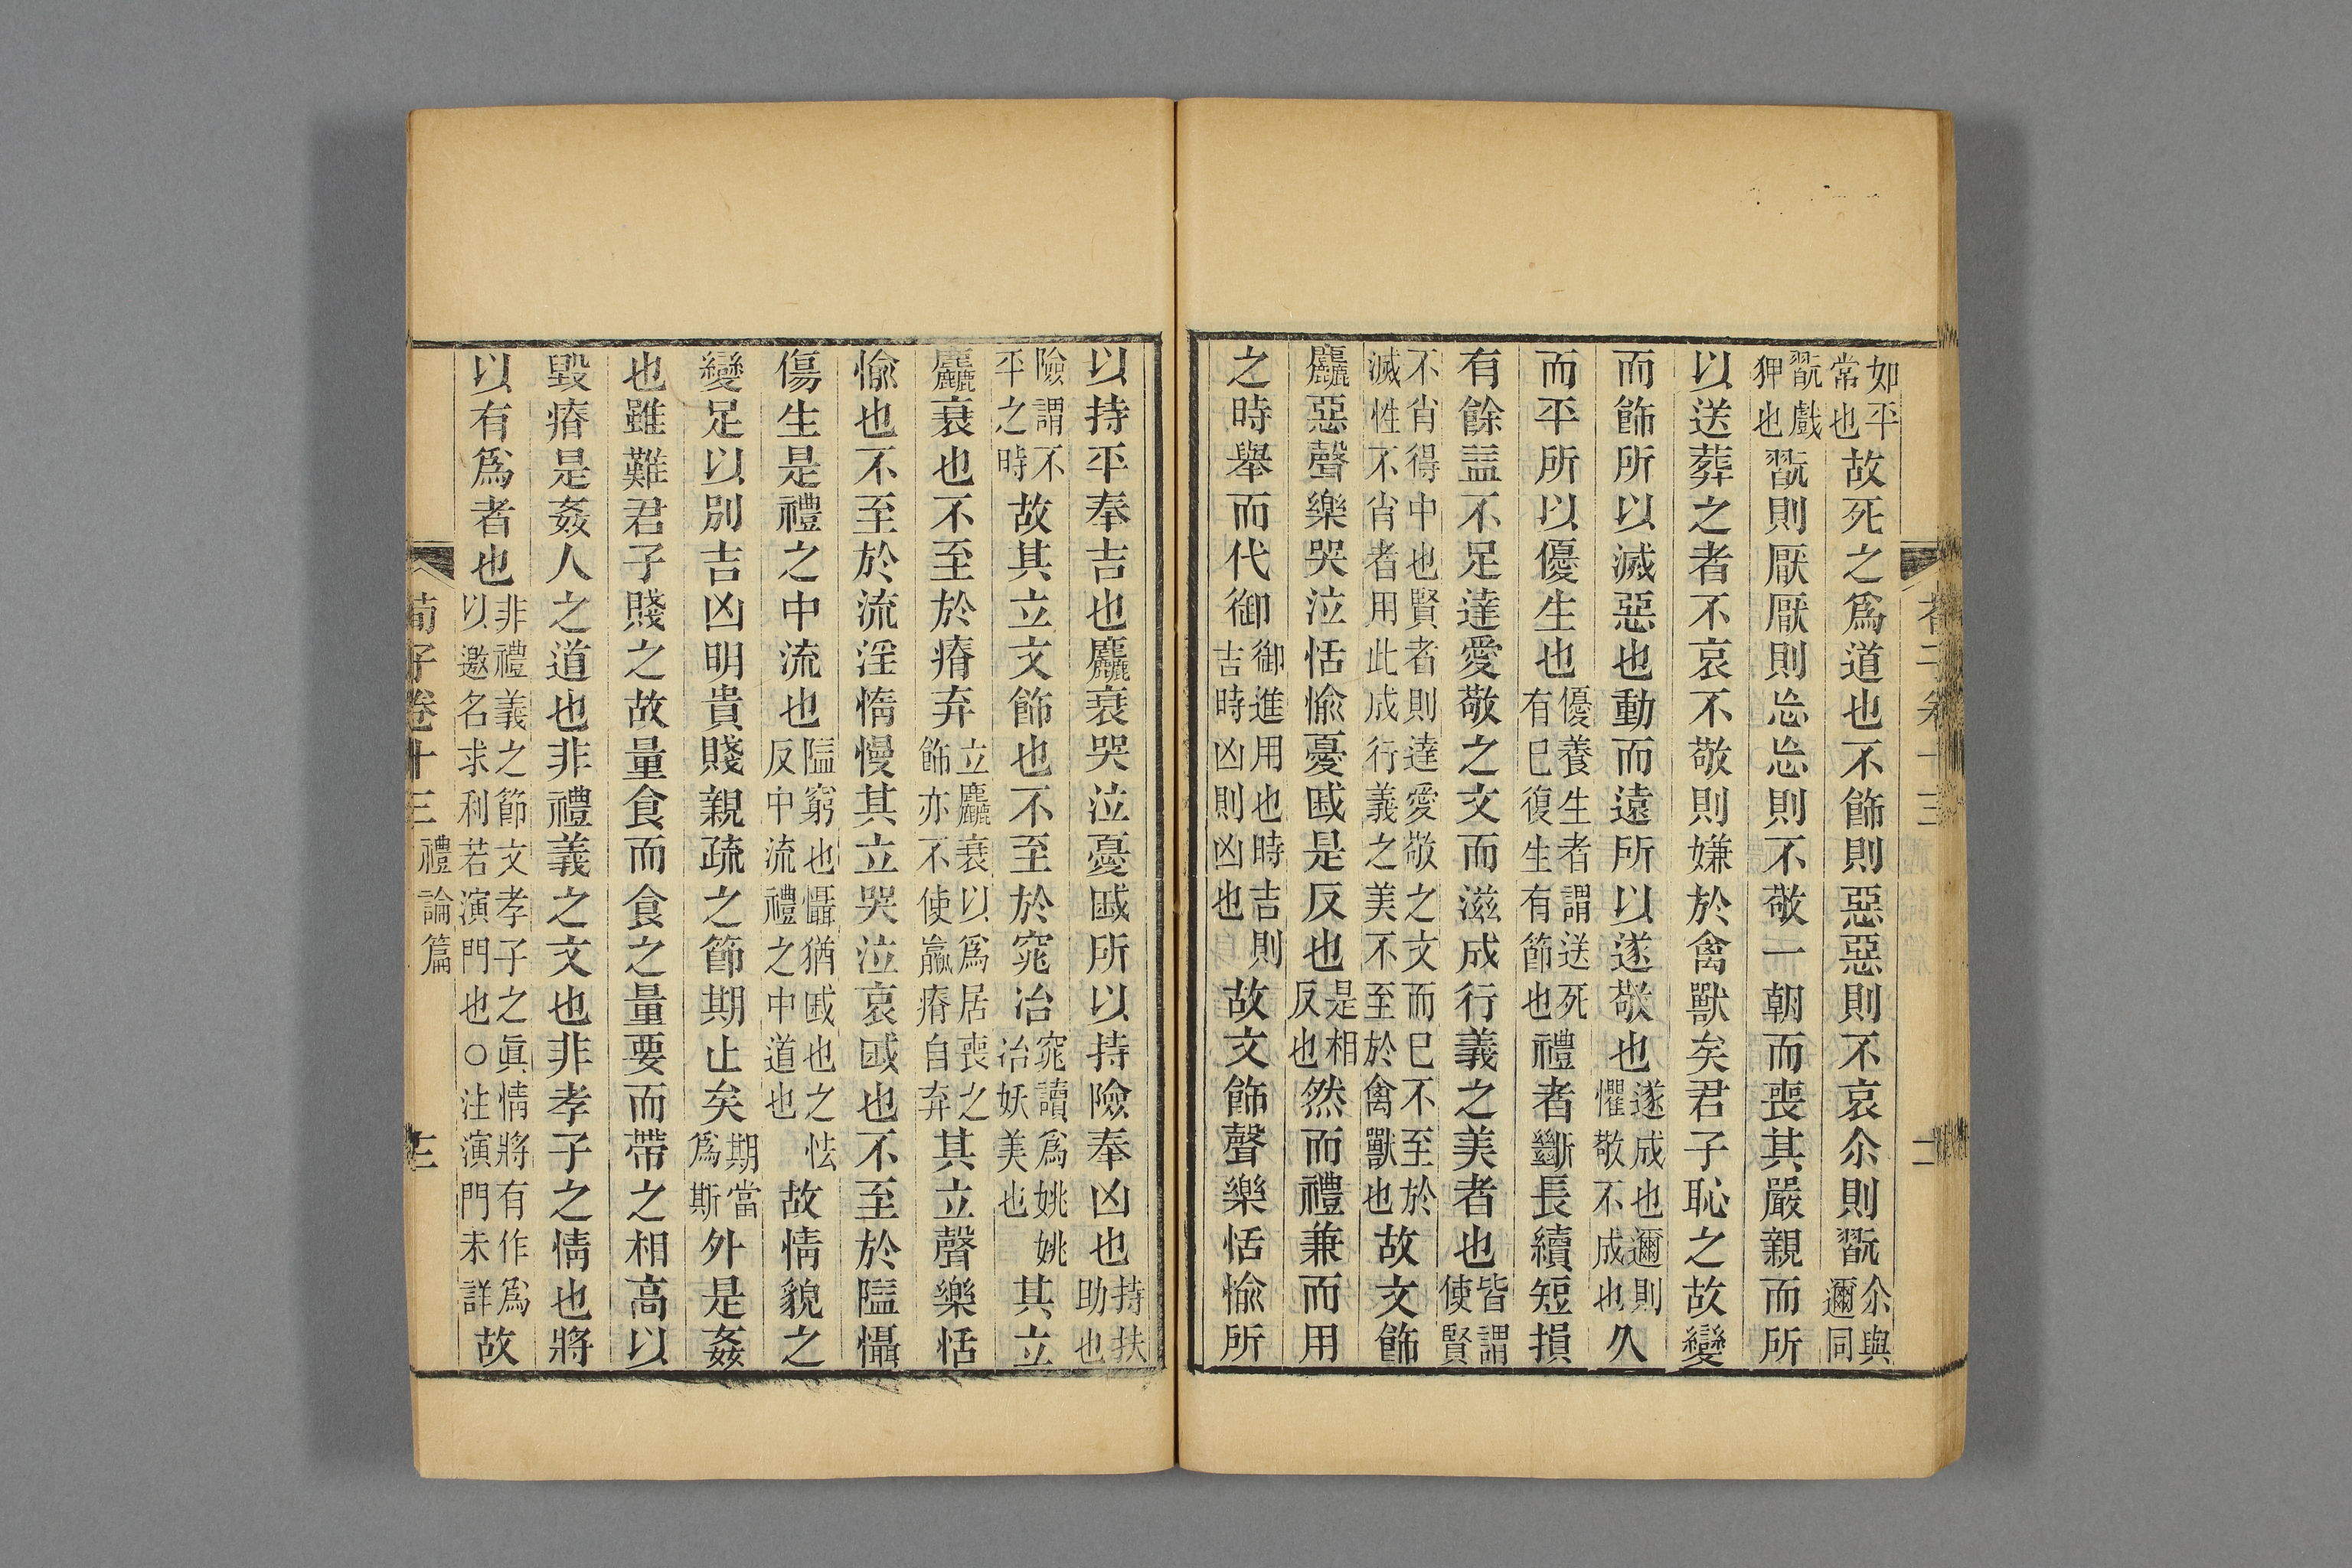 如平常也故死之爲道也不飾則惡惡則不哀尒則翫尒與邇同
翫戲狎也翫則厭厭則忘忘則不敬一朝而喪其嚴親而所
以送葬之者不哀不敬則嫌於禽獸矣君子恥之故變
而飾所以滅惡也動而遠所以遂敬也遂成也邇則懼敬不成也久
而平所以優生也優養生者謂送死有已復生有節也禮者斷長續短損
有餘益不足達愛敬之文而滋成行義之美者也皆謂使賢
不肖得中也賢者則達愛敬之文而已不至於滅性不肖者用此成行義之美不至於禽獸也故文飾
麤惡聲樂哭泣恬愉憂戚是反也是相反也然而禮兼而用
之時舉而代御御進用也時吉則吉時凶則凶也故文飾聲樂恬愉所
以持平奉吉也麤衰哭泣憂戚所以持險奉凶也持扶助也
險謂不平之時故其立文飾也不至於窕冶窕讀爲姚姚冶妖美也其立
麤衰也不至於瘠弃立麤衰以爲居喪之飾亦不使羸瘠自弃其立聲樂恬
愉也不至於流淫惰慢其立哭泣哀戚也不至於隘懾
傷生是禮之中流也隘窮也懾猶戚也之怯反中流禮之中道也故情貌之
變足以別吉凶明貴賤親疏之節期止矣期當爲斯外是姦
也雖難君子賤之故量食而食之量要而帶之相高以
毀瘠是姦人之道也非禮義之文也非孝子之情也將
以有爲者也非禮義之節文孝子之眞情將有作爲以邀名求利若演門也○注演門未詳故
荀子卷十三 禮論篇